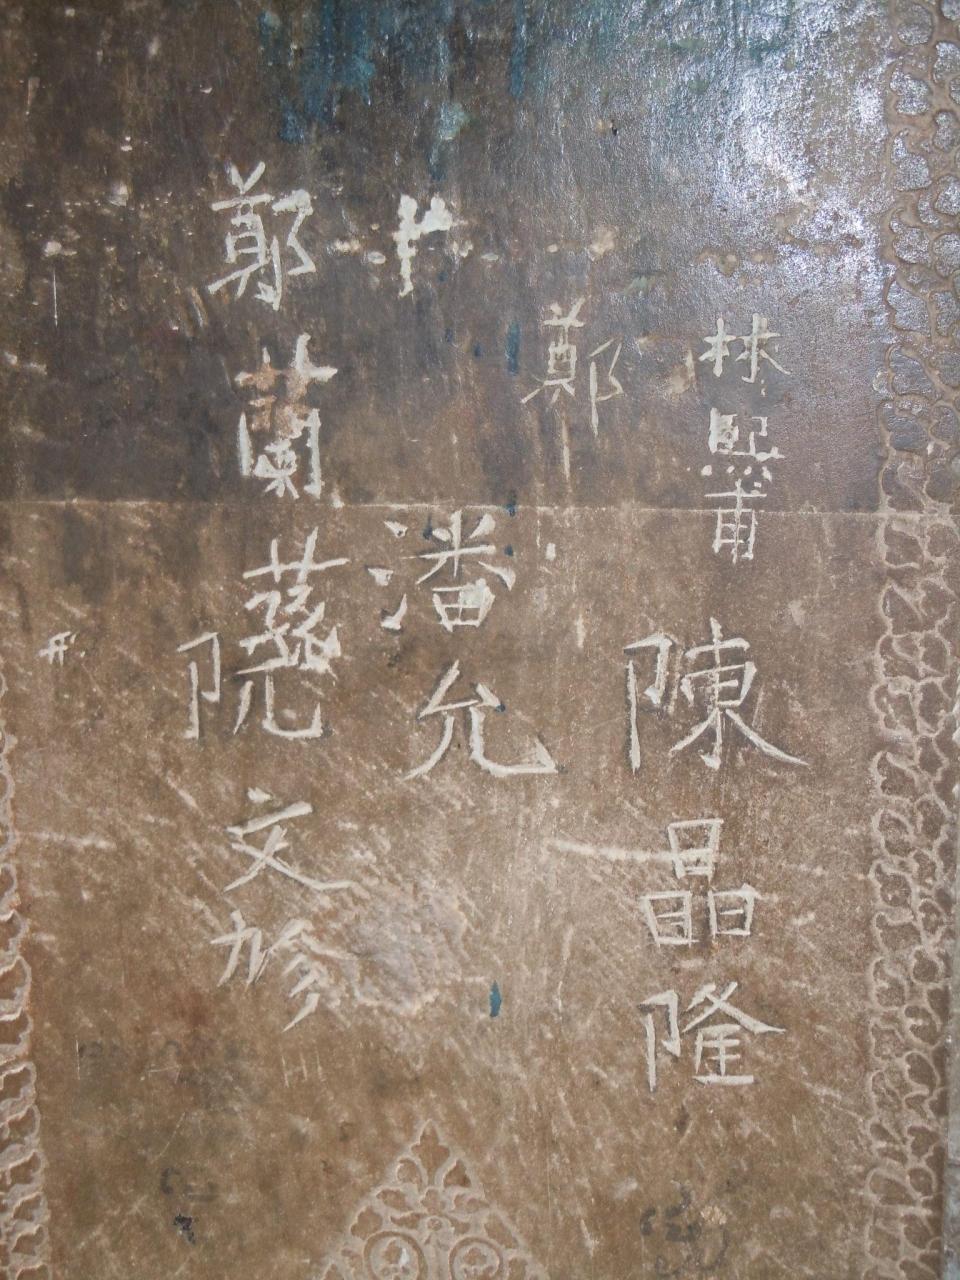 林熙甫
陳晶隆
鄭
潘允
鄭蘭
阮文